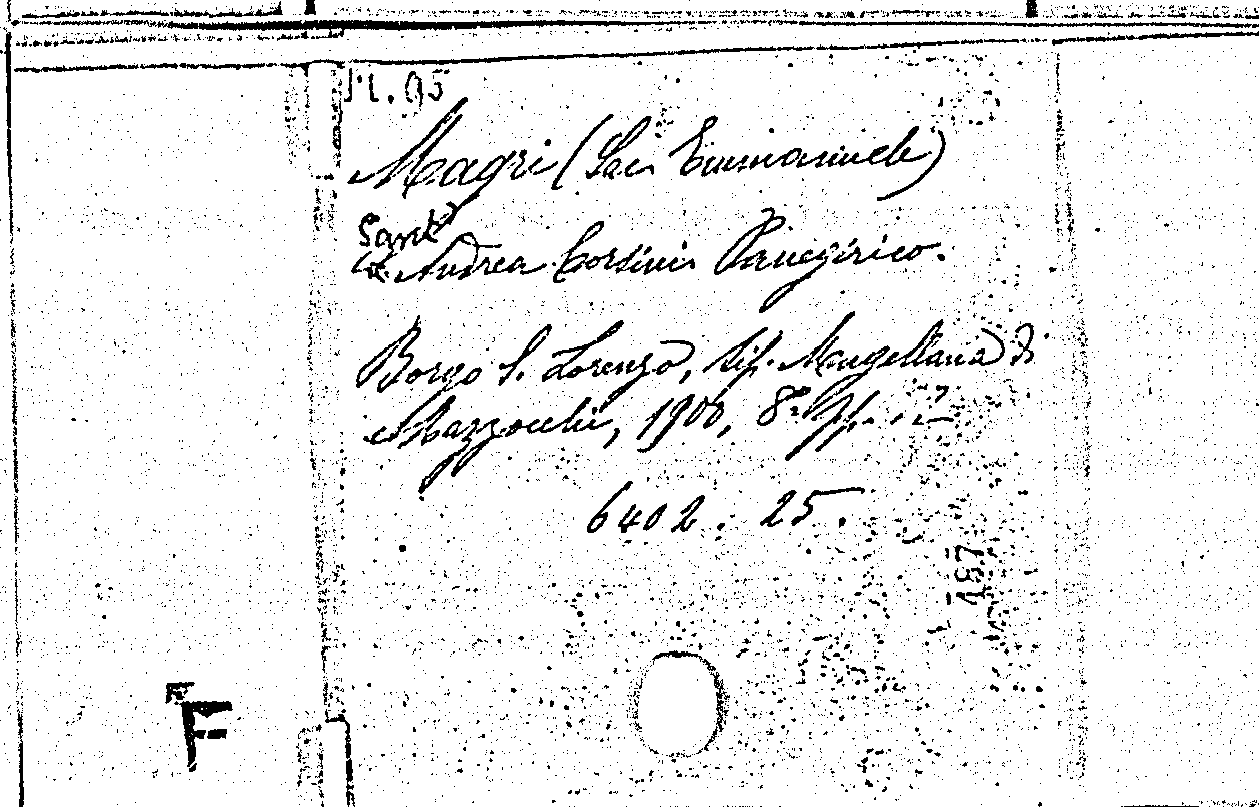 M. 95
Magri (Sac. Emmanuele)
Sant'
Andrea Corsini. Panegirico.
Borgo S. Lorenzo, tip. Mugellana di
Mazzocchi, 1900, 8° pp.
6402. 25.
187
F